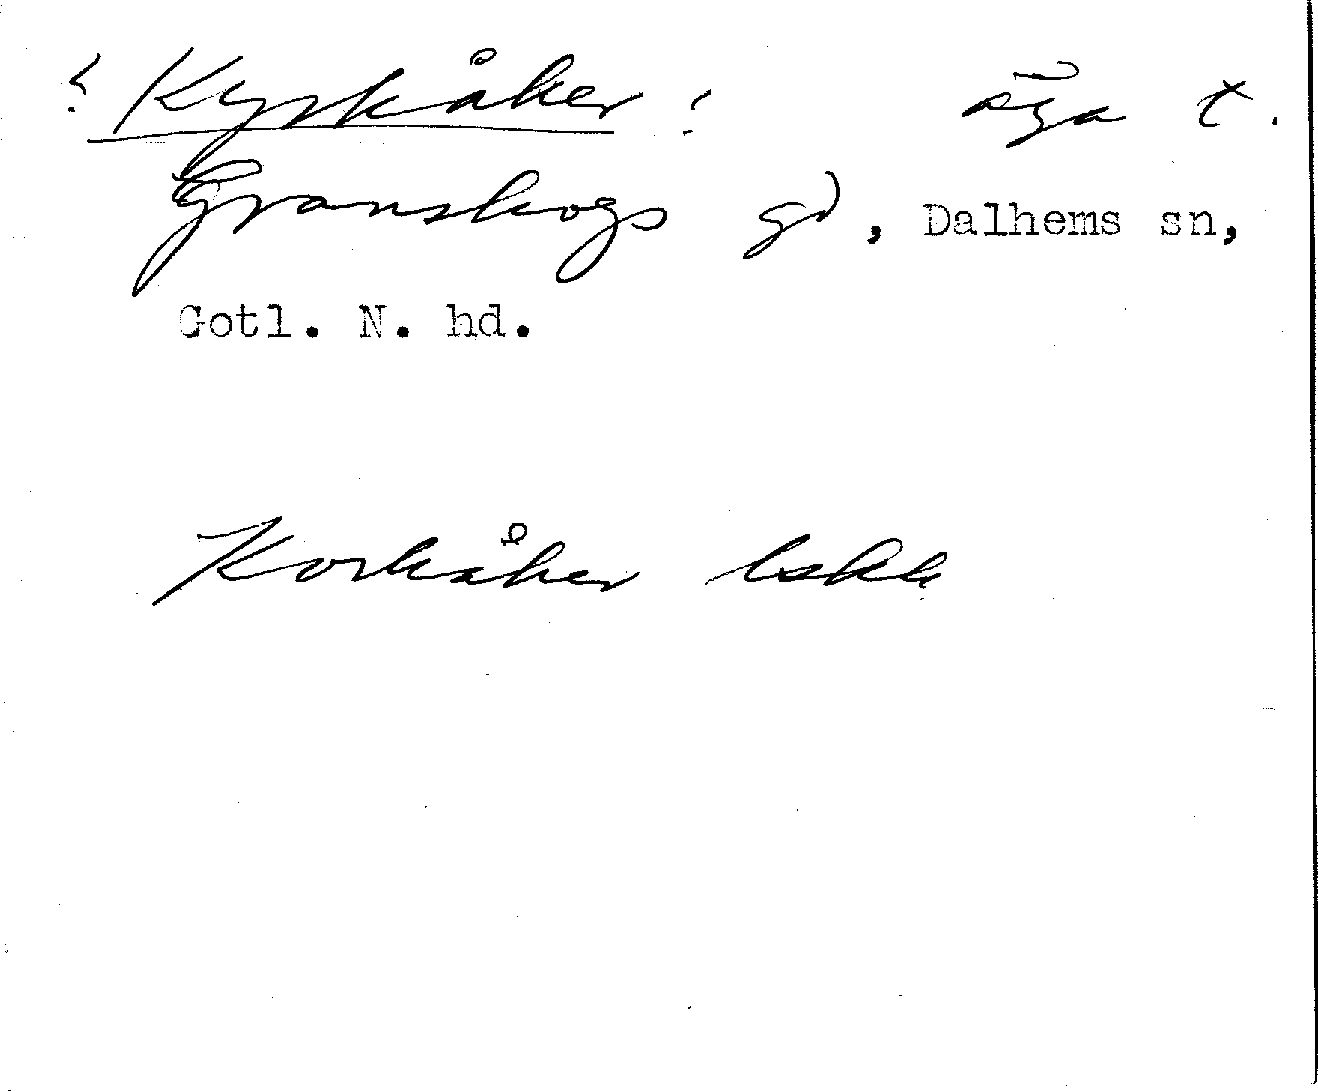 ? Kyrkåker : äga t.
Granskogs gd, Dalhems sn,
Gotl. N. hd.
Korkåker lskk